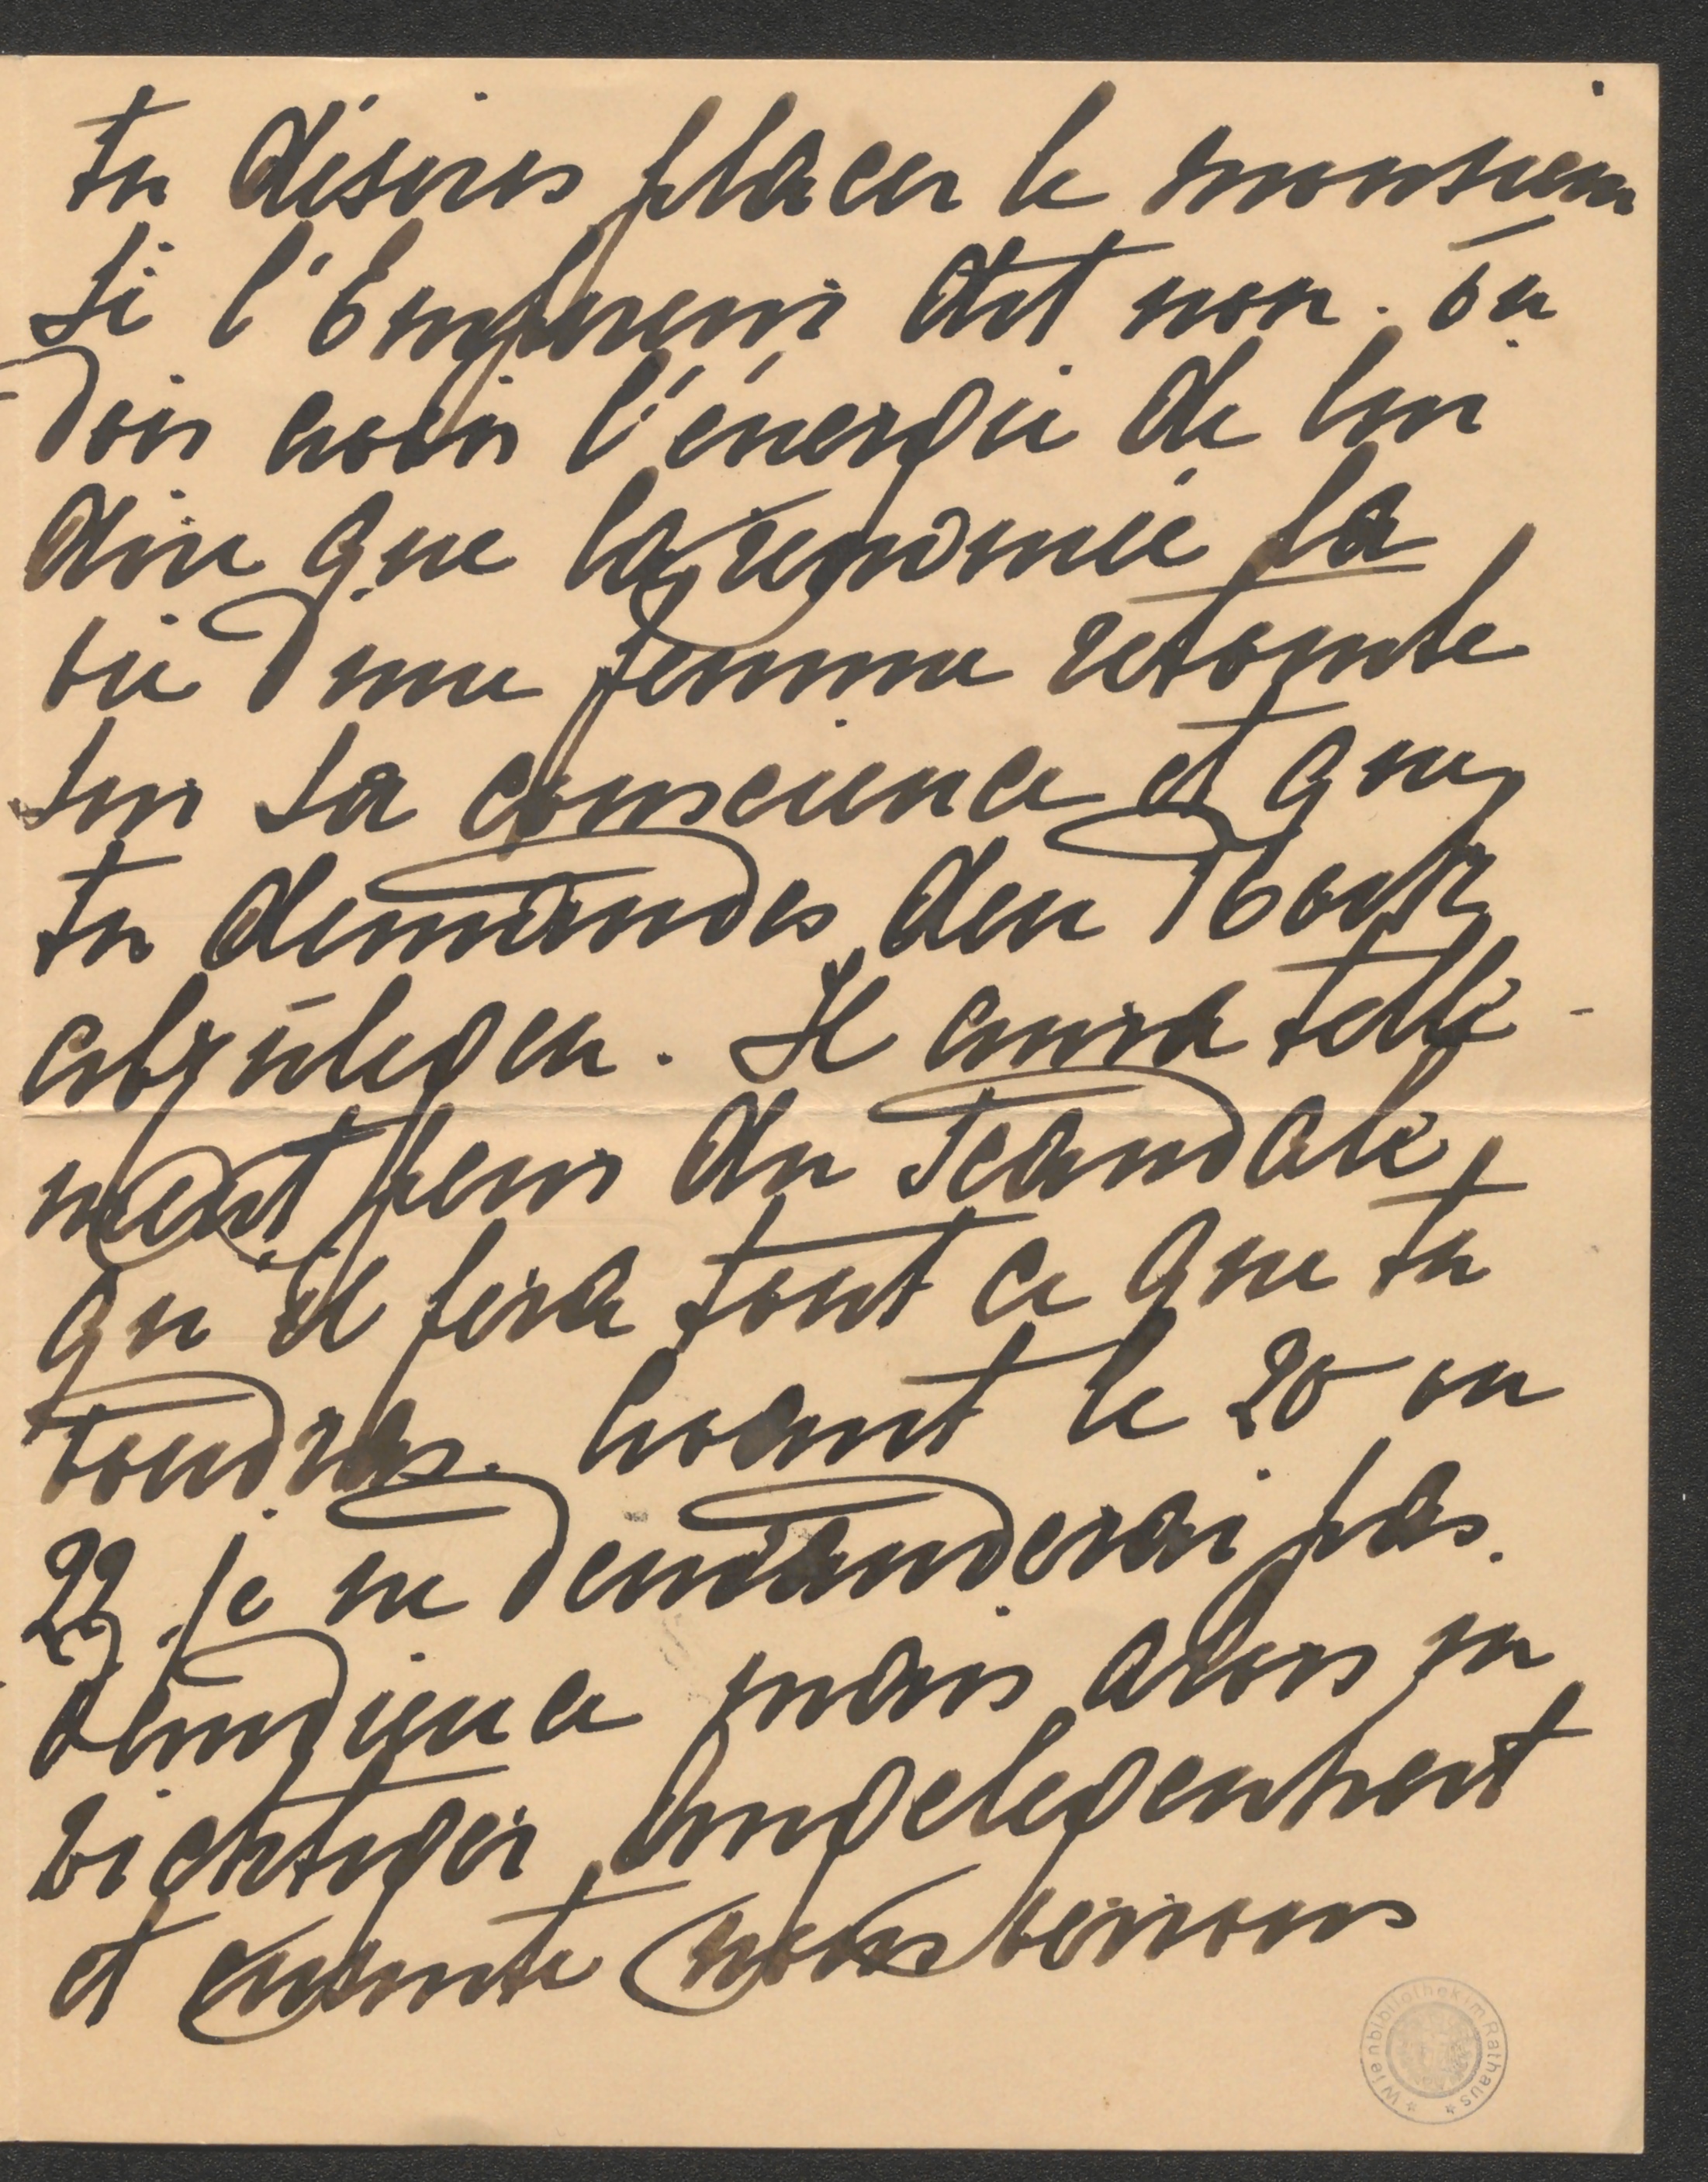 tu désires placer le monsieur
si l'Empereur dit non. Tu
dois avoir l'énergie de lui
dire que la renomée la
vie d'une femme retombe
sur sa conscience et que
tu demandes den Posten
abzulegen. Il aura telle-
ment peur du scandale,
qu'il fera tout ce que tu
voudras. Avant le 20 ou
22 je ne demanderai pas
d'audience mais alors in
wichtiger Angelegenheit
et ensuite nous verrons
Wienbibliothek im Rathaus